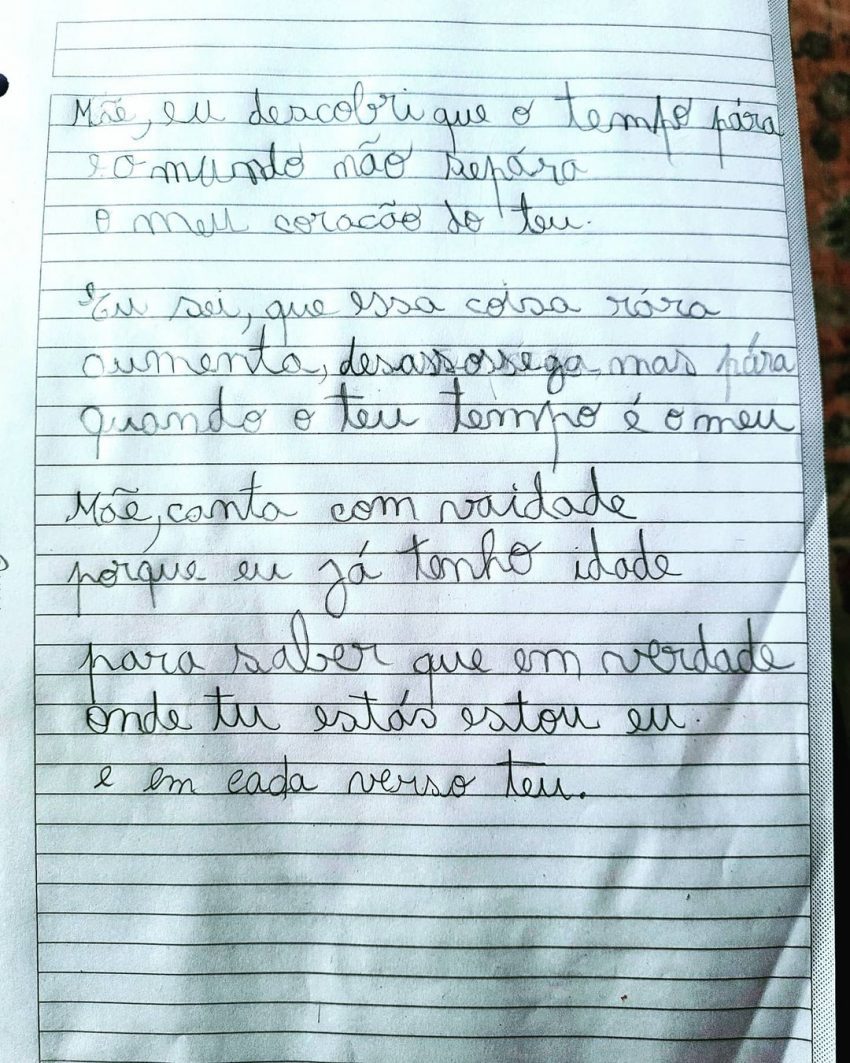 Mãe, eu descobri que o tempo pára
e o mundo não sepára
o meu coracão do teu.
Eu sei, que essa coisa rára
aumenta, desassossega mas pára
quando o teu tempo é o meu
Mãe, canta com vaidade
porque eu já tenho idade
para saber que em verdade
onde tu estás estou eu.
e em cada verso teu.